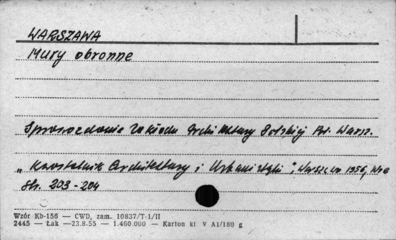 WARSZAWA
Mury obronne
Sprawozdanie Zakładu Architektury Polskiej Pol. Warsz.
„Kwartalnik Architektury i Urbanistyki", Warszawa 1956,
Str. 203-204
Wzór Kb-156 — CWD, zam. 10837/T-1/II
2445 — Łak —23.8.55 — 1.460.000 — Karton kl V A1/180 g